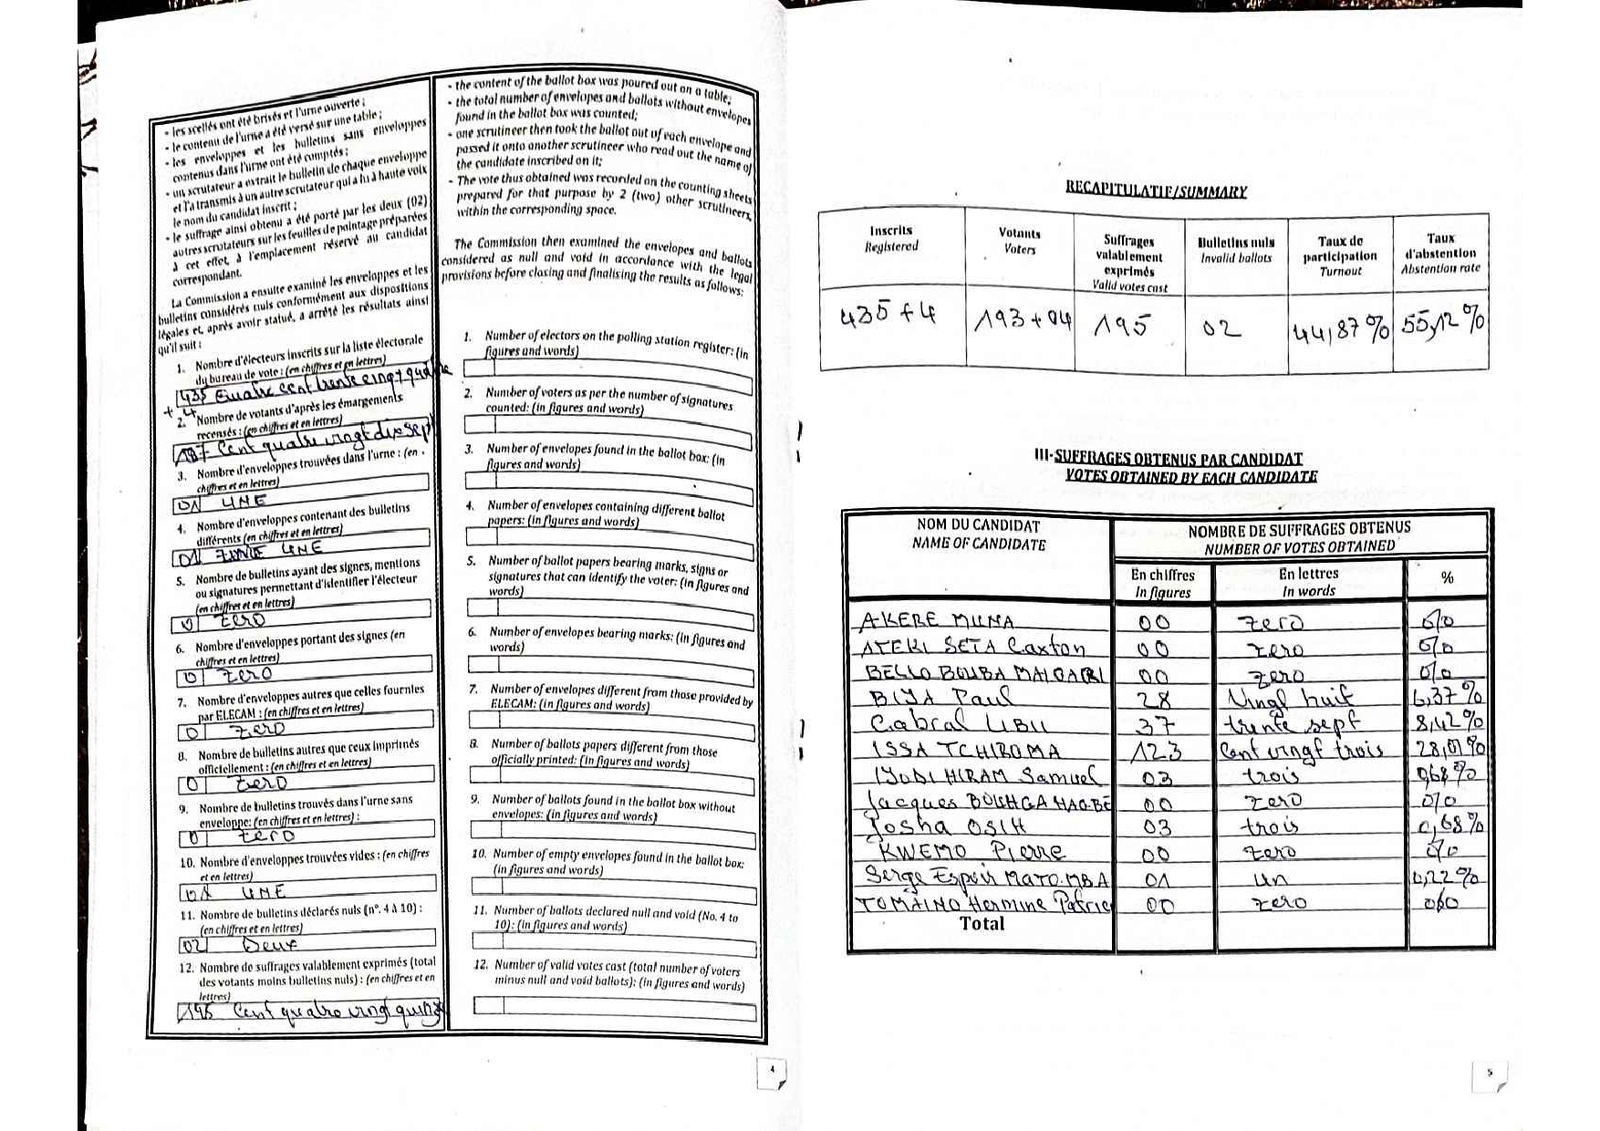 - les scellés ont été brisés et l'urne ouverte ;
- le contenu de l'urne a été versé sur une table ;
- les enveloppes et les bulletins sans enveloppes
contenus dans l'urne ont été comptés ;
- un scrutateur a extrait le bulletin de chaque enveloppe
et l'a transmis à un autre scrutateur qui a lu à haute voix
le nom du candidat inscrit ;
- le suffrage ainsi obtenu a été porté par les deux (02)
autres scrutateurs sur les feuilles de pointage préparées
à cet effet, à l'emplacement réservé au candidat
correspondant.
La Commission a ensuite examiné les enveloppes et les
bulletins considérés nuls conformément aux dispositions
légales et, après avoir statué, a arrêté les résultats ainsi
qu'il suit :
1. Nombre d'électeurs inscrits sur la liste électorale
du bureau de vote : (en chiffres et en lettres)
435 quatre cent trente cinq + quatre
+ 4
2. Nombre de votants d'après les émargements
recensés : (en chiffres et en lettres)
197 Cent quatre vingt dix sept
3. Nombre d'enveloppes trouvées dans l'urne : (en
chiffres et en lettres)
01 UNE
4. Nombre d'enveloppes contenant des bulletins
différents (en chiffres et en lettres)
01 UNE
5. Nombre de bulletins ayant des signes, mentions
ou signatures permettant d'identifier l'électeur
(en chiffres et en lettres)
0 zero
6. Nombre d'enveloppes portant des signes (en
chiffres et en lettres)
0 zero
7. Nombre d'enveloppes autres que celles fournies
par ELECAM : (en chiffres et en lettres)
0 zero
8. Nombre de bulletins autres que ceux imprimés
officiellement : (en chiffres et en lettres)
0 zero
9. Nombre de bulletins trouvés dans l'urne sans
enveloppe: (en chiffres et en lettres) :
0 zero
10. Nombre d'enveloppes trouvées vides : (en chiffres
et en lettres)
01 UNE
11. Nombre de bulletins déclarés nuls (n°. 4 à 10) :
(en chiffres et en lettres)
02 Deux
12. Nombre de suffrages valablement exprimés (total
des votants moins bulletins nuls) : (en chiffres et en
lettres)
195 Cent quatre vingt quinze
- the content of the ballot box was poured out on a table;
- the total number of envelopes and ballots without envelopes
found in the ballot box was counted;
- one scrutineer then took the ballot out of each envelope and
passed it onto another scrutineer who read out the name of
the candidate inscribed on it;
- The vote thus obtained was recorded on the counting sheets
prepared for that purpose by 2 (two) other scrutineers,
within the corresponding space.
The Commission then examined the envelopes and ballots
considered as null and void in accordance with the legal
provisions before closing and finalising the results as follows:
1. Number of electors on the polling station register: (in
figures and words)
2. Number of voters as per the number of signatures
counted: (in figures and words)
3. Number of envelopes found in the ballot box: (in
figures and words)
4. Number of envelopes containing different ballot
papers: (in figures and words)
5. Number of ballot papers bearing marks, signs or
signatures that can identify the voter: (in figures and
words)
6. Number of envelopes bearing marks: (in figures and
words)
7. Number of envelopes different from those provided by
ELECAM: (in figures and words)
8. Number of ballots papers different from those
officially printed: (in figures and words)
9. Number of ballots found in the ballot box without
envelopes: (in figures and words)
10. Number of empty envelopes found in the ballot box:
(in figures and words)
11. Number of ballots declared null and void (No. 4 to
10): (in figures and words)
12. Number of valid votes cast (total number of voters
minus null and void ballots): (in figures and words)
4
RECAPITULATIF/SUMMARY
Inscrits Registered | Votants Voters | Suffrages valablement exprimés Valid votes cast | Bulletins nuls Invalid ballots | Taux de participation Turnout | Taux d'abstention Abstention rate
435 + 4 | 193 + 04 | 195 | 02 | 44,87% | 55,12%
III- SUFFRAGES OBTENUS PAR CANDIDAT
VOTES OBTAINED BY EACH CANDIDATE
NOM DU CANDIDAT NAME OF CANDIDATE | NOMBRE DE SUFFRAGES OBTENUS NUMBER OF VOTES OBTAINED
En chiffres In figures | En lettres In words | %
AKERE MUNA 00 zero 0%
ATEKI SETA Caxton 00 zero 0%
BELLO BOUBA MAIGARI 00 zero 0%
BIYA Paul 28 Vingt huit 6,37%
Cabral LIBII 37 trente sept 8,42%
ISSA TCHIROMA 123 Cent vingt trois 28,01%
IYODI HIRAM Samuel 03 trois 0,68%
Jacques BOUHGA HAGBE 00 zero 0%
Josha OSIH 03 trois 0,68%
KWEMO Pierre 00 zero 0%
Serge Espoir MATOMBA 01 un 0,22%
TOMAINO Hermine Patricia 00 zero 0%
Total
5